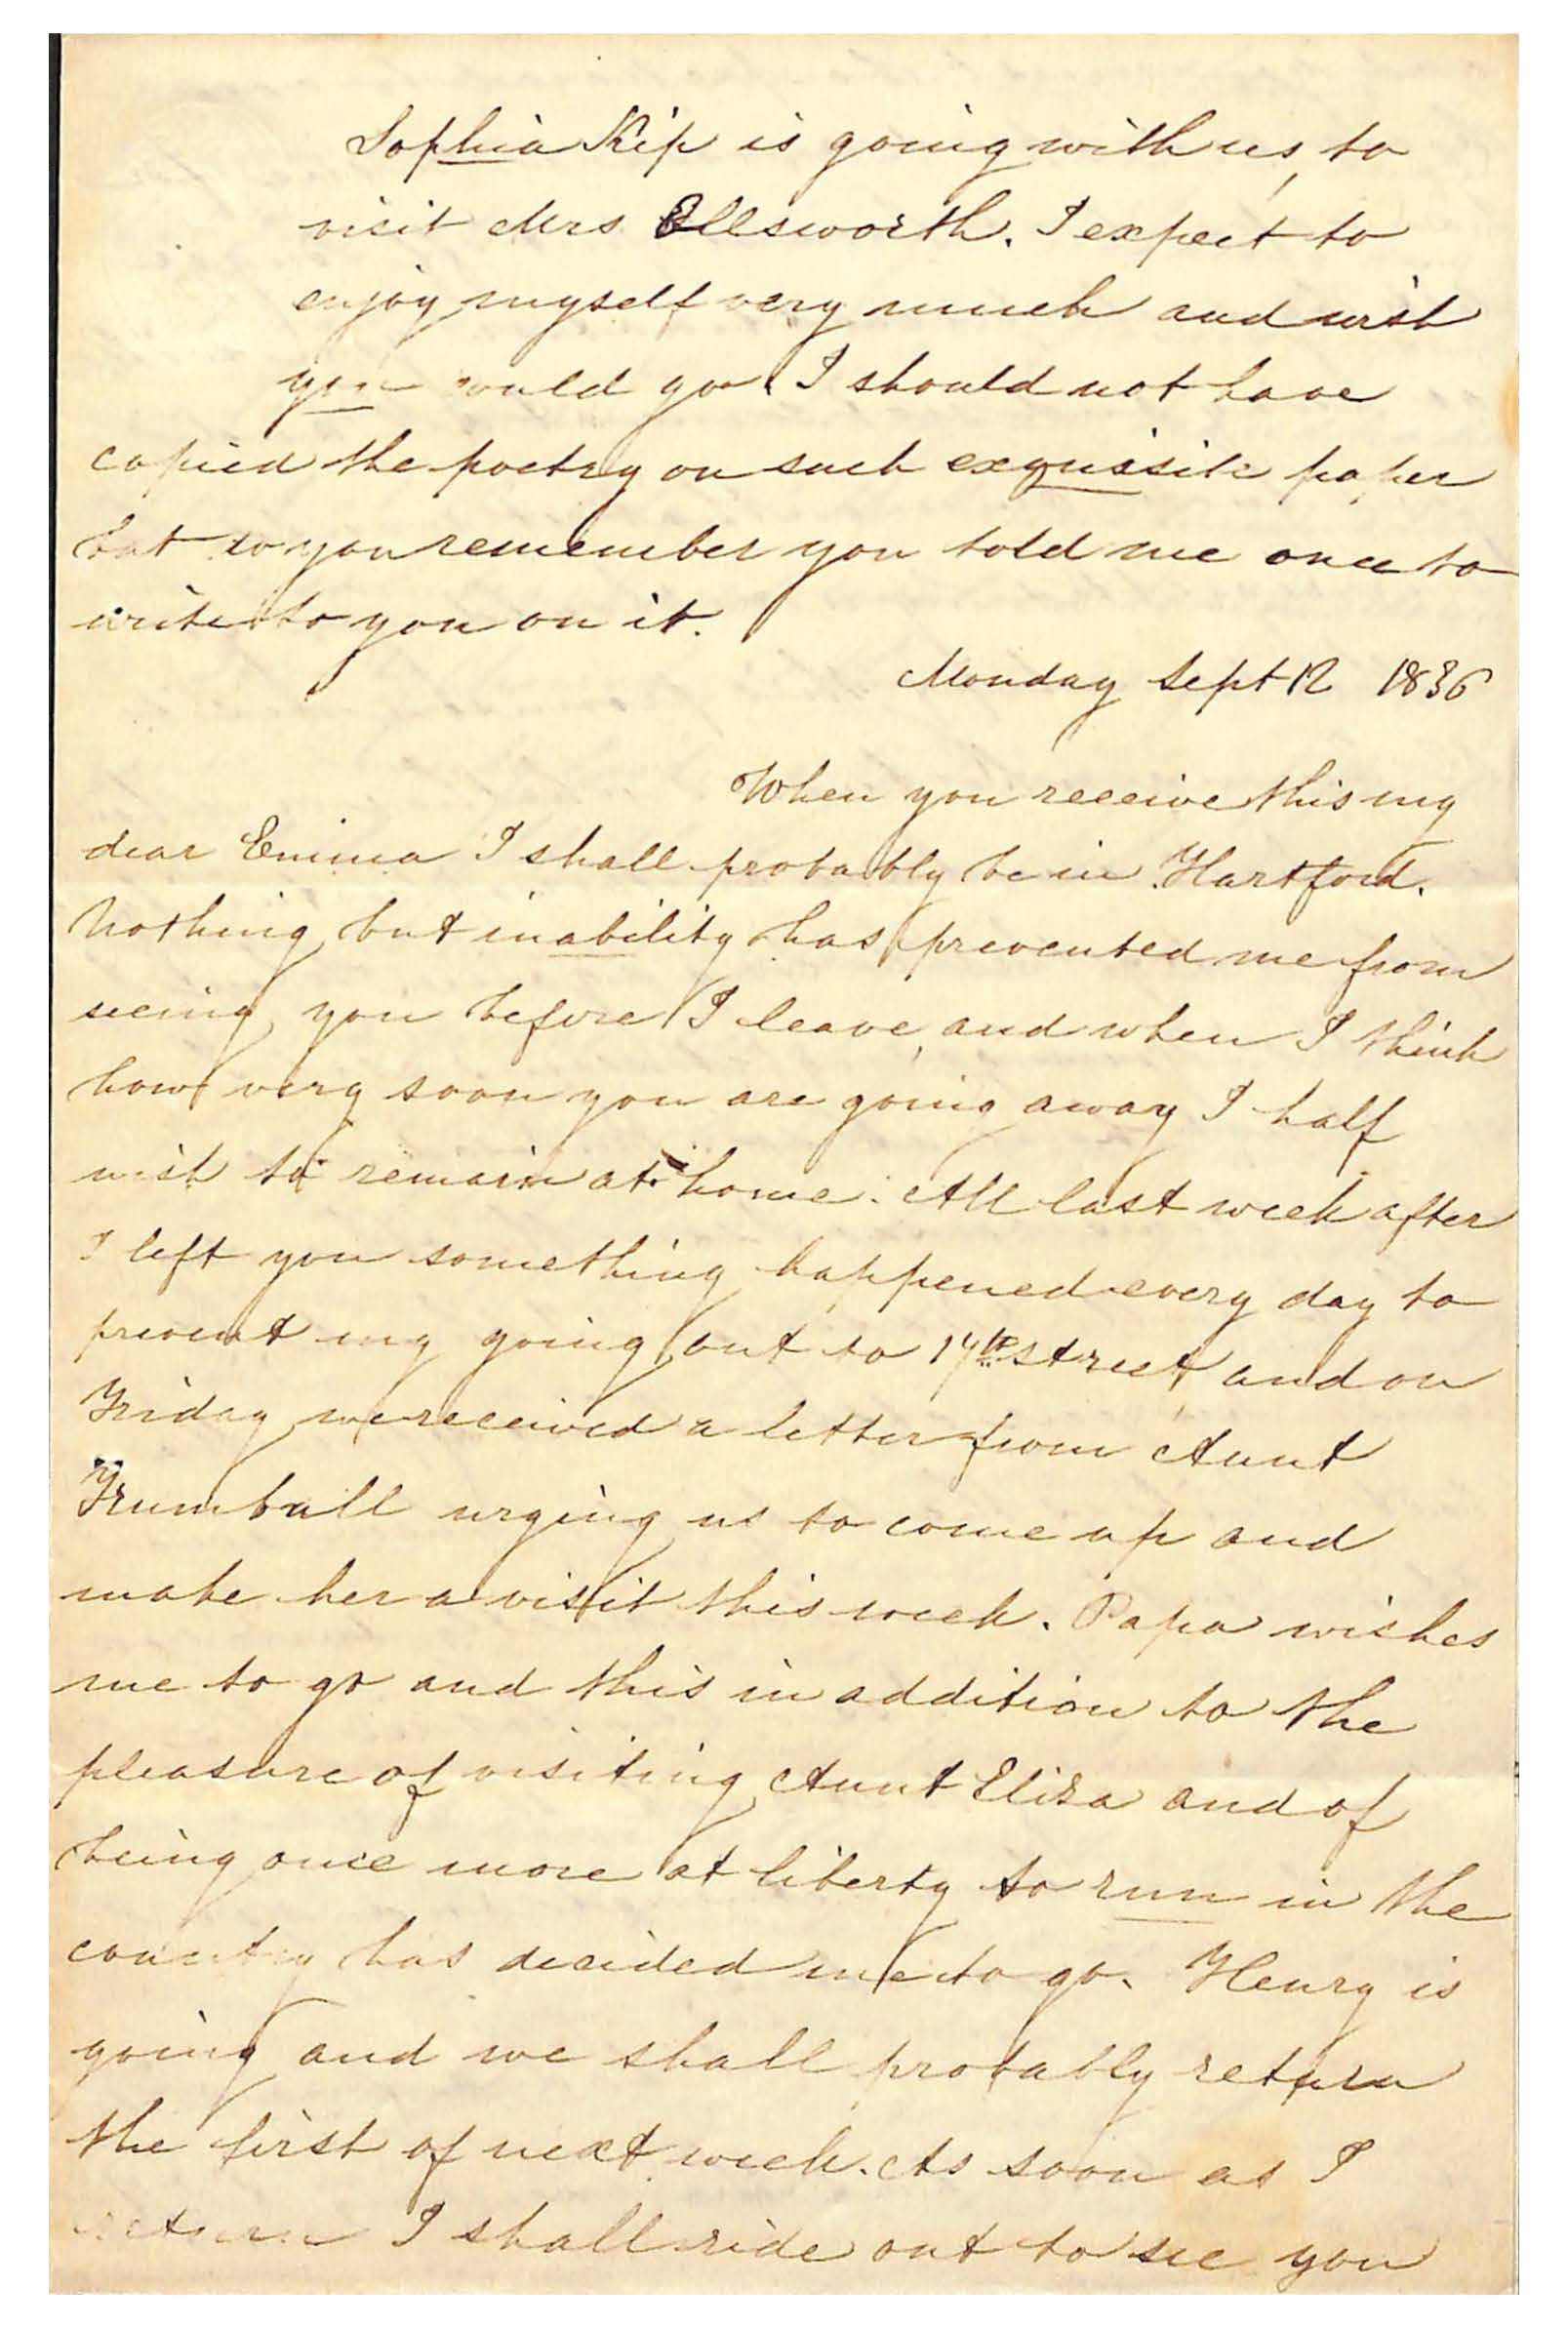 Sophia Kip is going with us, to
visit Mrs Ellsworth. I expect to
enjoy myself very much and wish
you would go. I should not have
copied the poetry on such exquisite paper
but do you remember you told me once to
write to you on it.
Monday Sept 12 1836
When you receive this my
dear Emma I shall probably be in Hartford.
Nothing but inability has prevented me from
seeing you before I leave, and when I think
how very soon you are going away I half
wish to remain at home. All last week after
I left you something happened every day to
prevent my going out to street, and on
Friday we received a letter from Aunt
Trumbull urging us to come up and
make her a visit this week. Papa wishes
me to go and this in addition to the
pleasure of visiting Aunt Eliza and of
being once more at liberty to run in the
country has decided me to go. Henry is
going and we shall probably return
the first of next week. As soon as I
return I shall ride out to see you